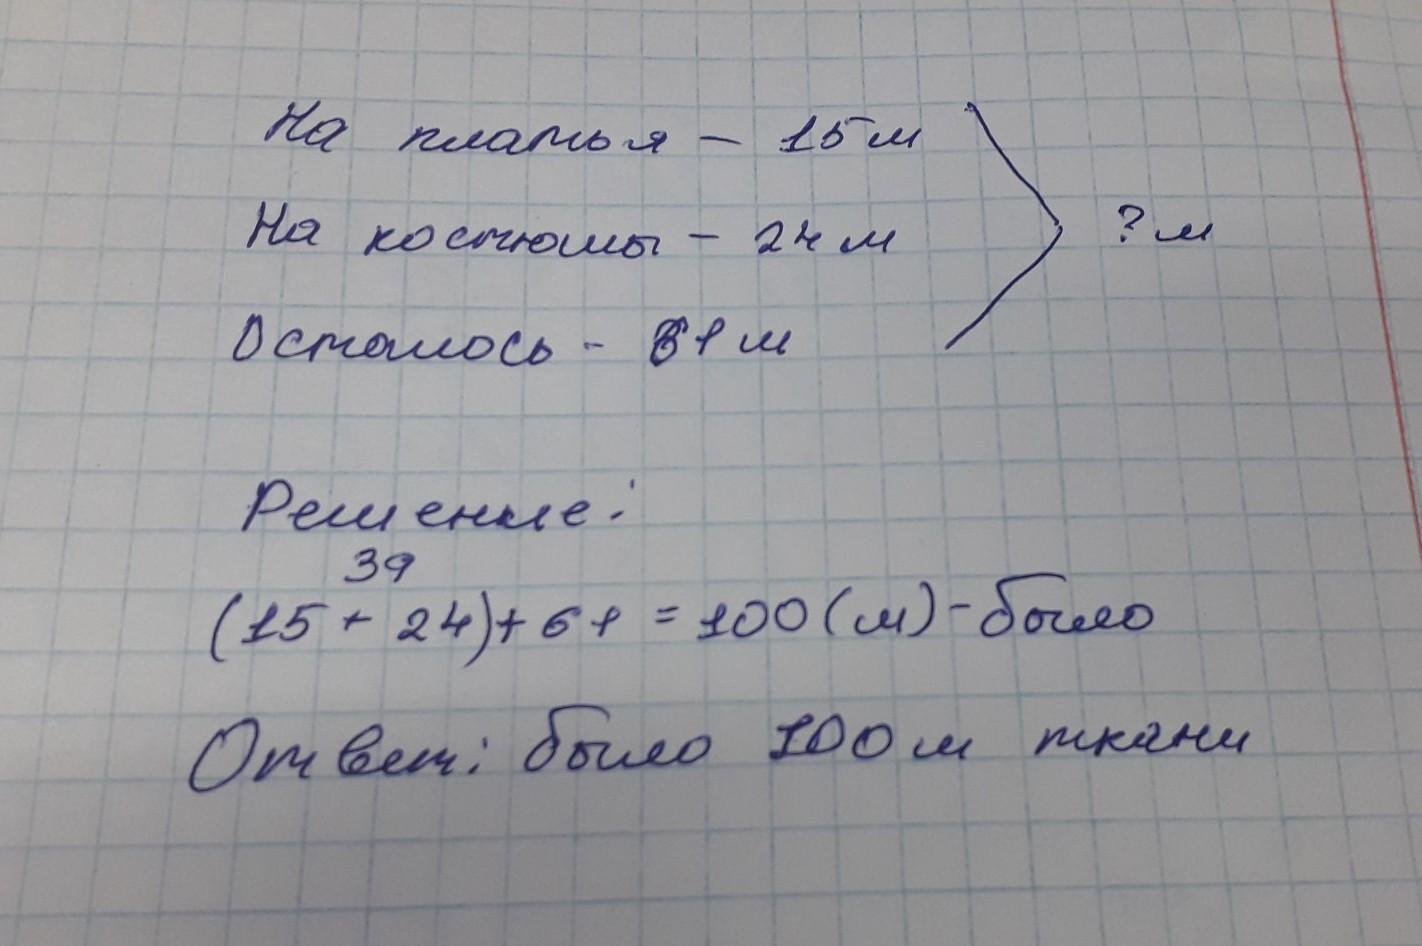 На платья - 15 м
На костюмы - 24 м
? м
Осталось - 61 м
Решение:
39
(15 + 24) + 61 = 100 (м) - было
Ответ: было 100 м ткани